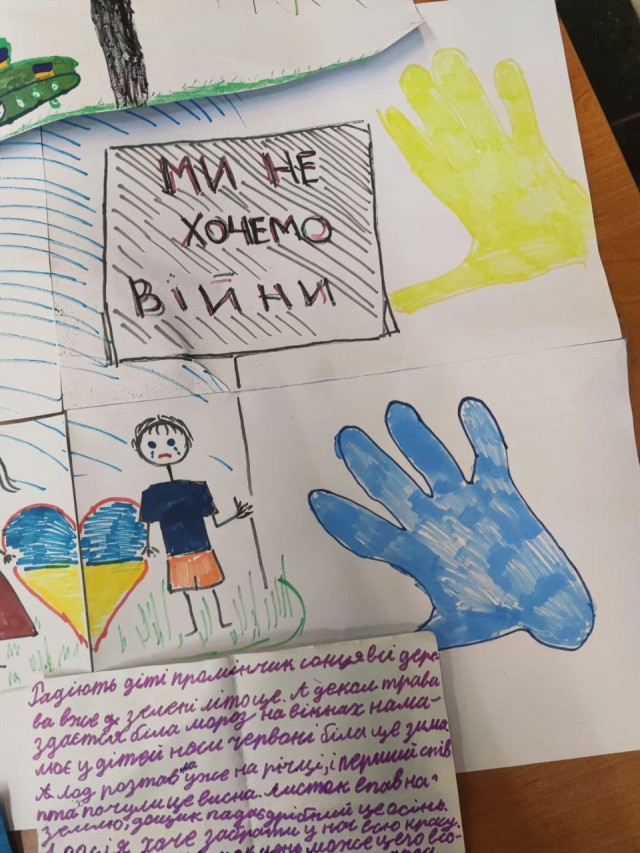 МИ НЕ
ХОЧЕМО
ВІЙНИ
Радіють діті промінчик сонця всі дере-
ва вже в зелені літо це. А деколи трава
здається біла мороз на вікнах нама-
лює у дітей носи червоні біла це зима
А лод розтав на уже на річці, і перший спів
пта почули це висна. Листок впав на
землю, дощик падає дрібний це осінь.
хоче забрати у нас всю красу.
може цего